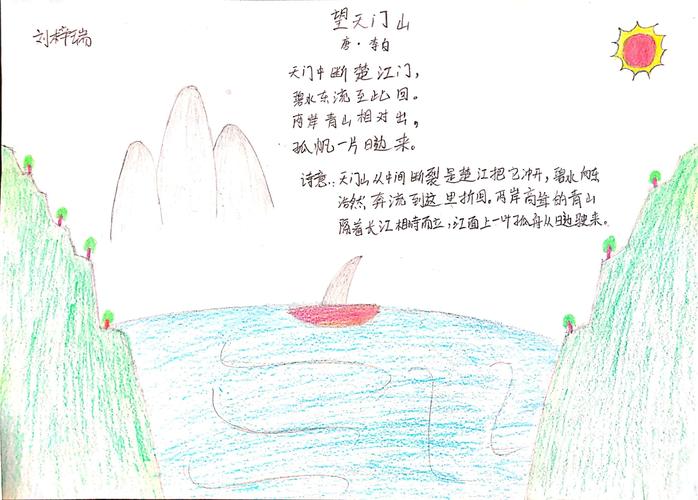 刘梓瑞
望天门山
唐·李白
天门中断楚江门，
碧水东流至此回。
两岸青山相对出，
孤帆一片日边来。
诗意：天门山从中间断裂是楚江把它冲开，碧水向东
浩然奔流到这里折回。两岸高耸的青山
隔着长江相峙而立，江面上一叶孤舟从日边驶来。